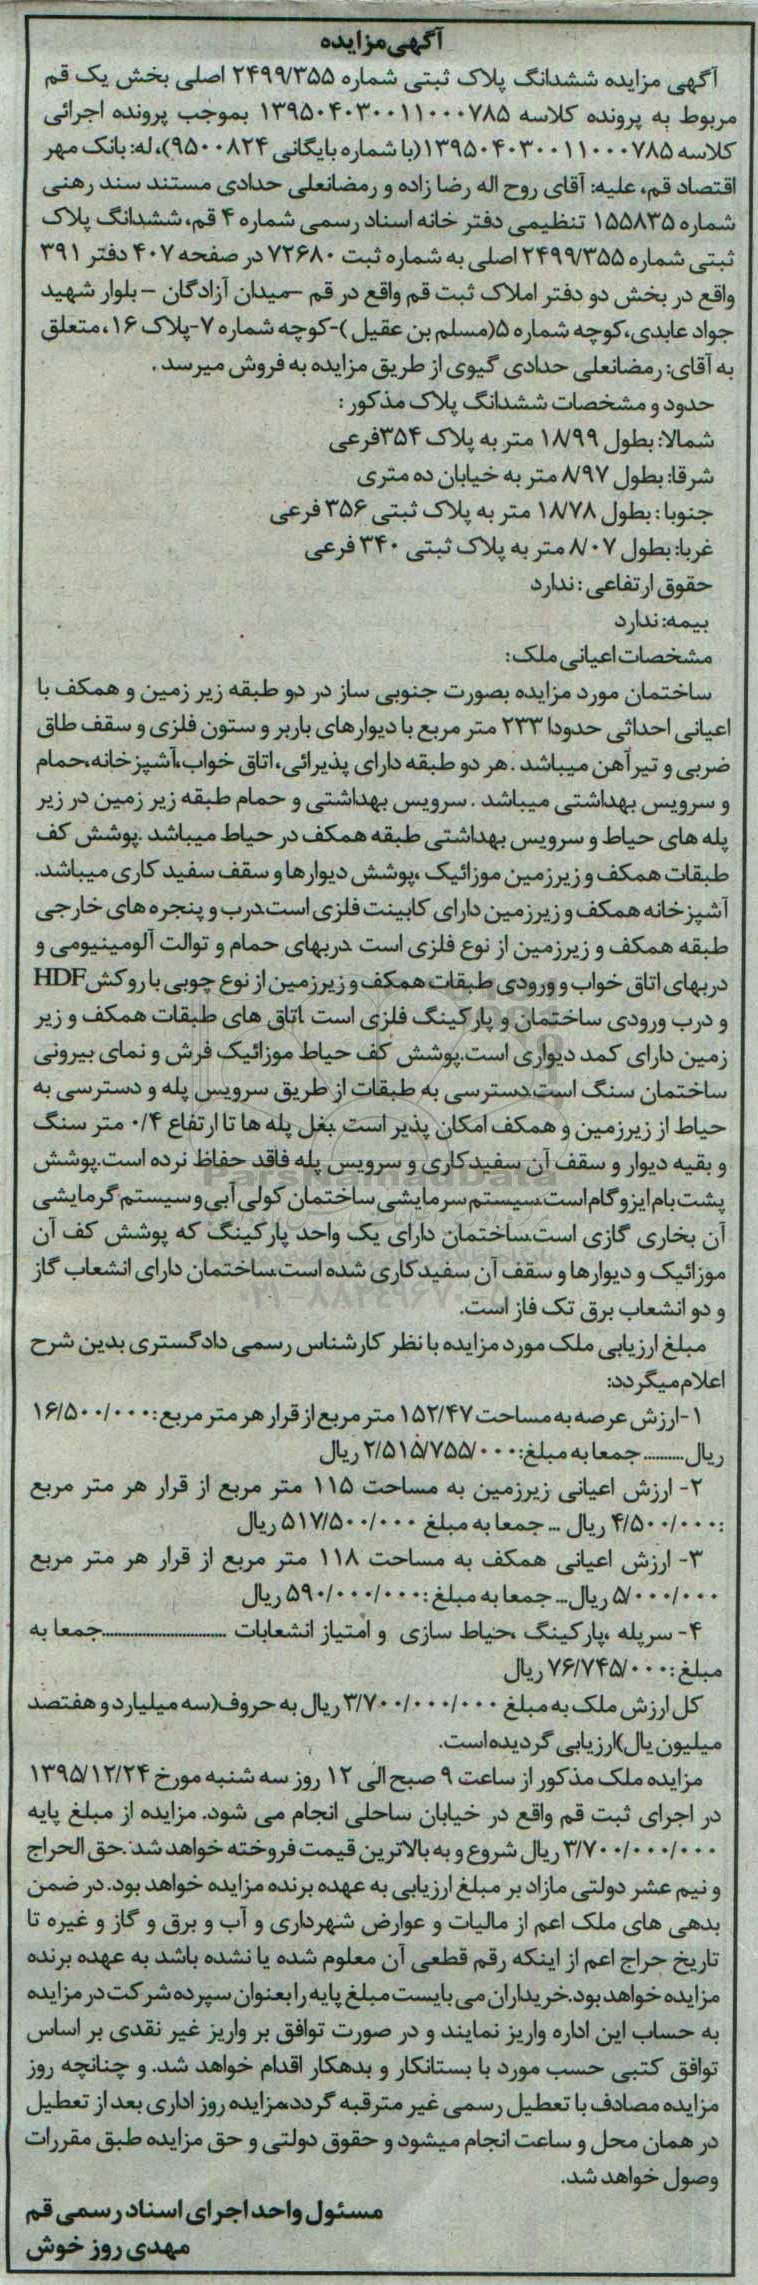 آگهی مزایده
آگهی مزایده ششدانگ پلاک ثبتی شماره ۲۴۹۹/۳۵۵ اصلی بخش یک قم
مربوط به پرونده کلاسه ۱۳۹۵۰۴۰۳۰۰۱۱۰۰۰۷۸۵ بموجب پرونده اجرائی
کلاسه ۱۳۹۵۰۴۰۳۰۰۱۱۰۰۰۷۸۵(با شماره بایگانی ۹۵۰۰۸۲۴)، له: بانک مهر
اقتصاد قم، علیه: آقای روح اله رضا زاده و رمضانعلی حدادی مستند سند رهنی
شماره ۱۵۵۸۳۵ تنظیمی دفتر خانه اسناد رسمی شماره ۴ قم، ششدانگ پلاک
ثبتی شماره ۲۴۹۹/۳۵۵ اصلی به شماره ثبت ۷۲۶۸۰ در صفحه ۴۰۷ دفتر ۳۹۱
واقع در بخش دو دفتر املاک ثبت قم واقع در قم –میدان آزادگان – بلوار شهید
جواد عابدی،کوچه شماره ۵(مسلم بن عقیل)-کوچه شماره ۷-پلاک ۱۶، متعلق
به آقای: رمضانعلی حدادی گیوی از طریق مزایده به فروش میرسد .
حدود و مشخصات ششدانگ پلاک مذکور :
شمالا: بطول ۱۸/۹۹ متر به پلاک ۳۵۴فرعی
شرقا: بطول ۸/۹۷ متر به خیابان ده متری
جنوبا : بطول ۱۸/۷۸ متر به پلاک ثبتی ۳۵۶ فرعی
غربا: بطول ۸/۰۷ متر به پلاک ثبتی ۳۴۰ فرعی
حقوق ارتفاعی : ندارد
بیمه: ندارد
مشخصات اعیانی ملک:
ساختمان مورد مزایده بصورت جنوبی ساز در دو طبقه زیر زمین و همکف با
اعیانی احداثی حدودا ۲۳۳ متر مربع با دیوارهای باربر و ستون فلزی و سقف طاق
ضربی و تیرآهن میباشد .هر دو طبقه دارای پذیرائی، اتاق خواب،آشپزخانه،حمام
و سرویس بهداشتی میباشد . سرویس بهداشتی و حمام طبقه زیر زمین در زیر
پله های حیاط و سرویس بهداشتی طبقه همکف در حیاط میباشد .پوشش کف
طبقات همکف و زیرزمین موزائیک ،پوشش دیوارها و سقف سفید کاری میباشد.
آشپزخانه همکف و زیرزمین دارای کابینت فلزی است.درب و پنجره های خارجی
طبقه همکف و زیرزمین از نوع فلزی است .دربهای حمام و توالت آلومینیومی و
دربهای اتاق خواب و ورودی طبقات همکف و زیرزمین از نوع چوبی با روکش HDF
و درب ورودی ساختمان و پارکینگ فلزی است .اتاق های طبقات همکف و زیر
زمین دارای کمد دیواری است.پوشش کف حیاط موزائیک فرش و نمای بیرونی
ساختمان سنگ است.دسترسی به طبقات از طریق سرویس پله و دسترسی به
حیاط از زیرزمین و همکف امکان پذیر است .بغل پله ها تا ارتفاع ۰/۴ متر سنگ
و بقیه دیوار و سقف آن سفیدکاری و سرویس پله فاقد حفاظ نرده است.پوشش
پشت بام ایزوگام است.سیستم سرمایشی ساختمان کولر آبی و سیستم گرمایشی
آن بخاری گازی است.ساختمان دارای یک واحد پارکینگ که پوشش کف آن
موزائیک و دیوارها و سقف آن سفیدکاری شده است.ساختمان دارای انشعاب گاز
و دو انشعاب برق تک فاز است.
مبلغ ارزیابی ملک مورد مزایده با نظر کارشناس رسمی دادگستری بدین شرح
اعلام میگردد:
۱-ارزش عرصه به مساحت ۱۵۲/۴۷ متر مربع از قرار هر متر مربع :۱۶/۵۰۰/۰۰۰
ریال......... جمعا به مبلغ:۲/۵۱۵/۷۵۵/۰۰۰ ریال
۲- ارزش اعیانی زیرزمین به مساحت ۱۱۵ متر مربع از قرار هر متر مربع
:۴/۵۰۰/۰۰۰ ریال ... جمعا به مبلغ ۵۱۷/۵۰۰/۰۰۰ ریال
۳- ارزش اعیانی همکف به مساحت ۱۱۸ متر مربع از قرار هر متر مربع
۵/۰۰۰/۰۰۰ ریال... جمعا به مبلغ :۵۹۰/۰۰۰/۰۰۰ ریال
۴- سرپله ،پارکینگ ،حیاط سازی و امتیاز انشعابات ..............................جمعا به
مبلغ :۷۶/۷۴۵/۰۰۰ ریال
کل ارزش ملک به مبلغ ۳/۷۰۰/۰۰۰/۰۰۰ ریال به حروف(سه میلیارد و هفتصد
میلیون یال)ارزیابی گردیده است.
مزایده ملک مذکور از ساعت ۹ صبح الی ۱۲ روز سه شنبه مورخ ۱۳۹۵/۱۲/۲۴
در اجرای ثبت قم واقع در خیابان ساحلی انجام می شود. مزایده از مبلغ پایه
۳/۷۰۰/۰۰۰/۰۰۰ ریال شروع و به بالاترین قیمت فروخته خواهد شد .حق الحراج
و نیم عشر دولتی مازاد بر مبلغ ارزیابی به عهده برنده مزایده خواهد بود. در ضمن
بدهی های ملک اعم از مالیات و عوارض شهرداری و آب و برق و گاز و غیره تا
تاریخ حراج اعم از اینکه رقم قطعی آن معلوم شده یا نشده باشد به عهده برنده
مزایده خواهد بود.خریداران می بایست مبلغ پایه را بعنوان سپرده شرکت در مزایده
به حساب این اداره واریز نمایند و در صورت توافق بر واریز غیر نقدی بر اساس
توافق کتبی حسب مورد با بستانکار و بدهکار اقدام خواهد شد. و چنانچه روز
مزایده مصادف با تعطیل رسمی غیر مترقبه گردد،مزایده روز اداری بعد از تعطیل
در همان محل و ساعت انجام میشود و حقوق دولتی و حق مزایده طبق مقررات
وصول خواهد شد.
مسئول واحد اجرای اسناد رسمی قم
مهدی روز خوش